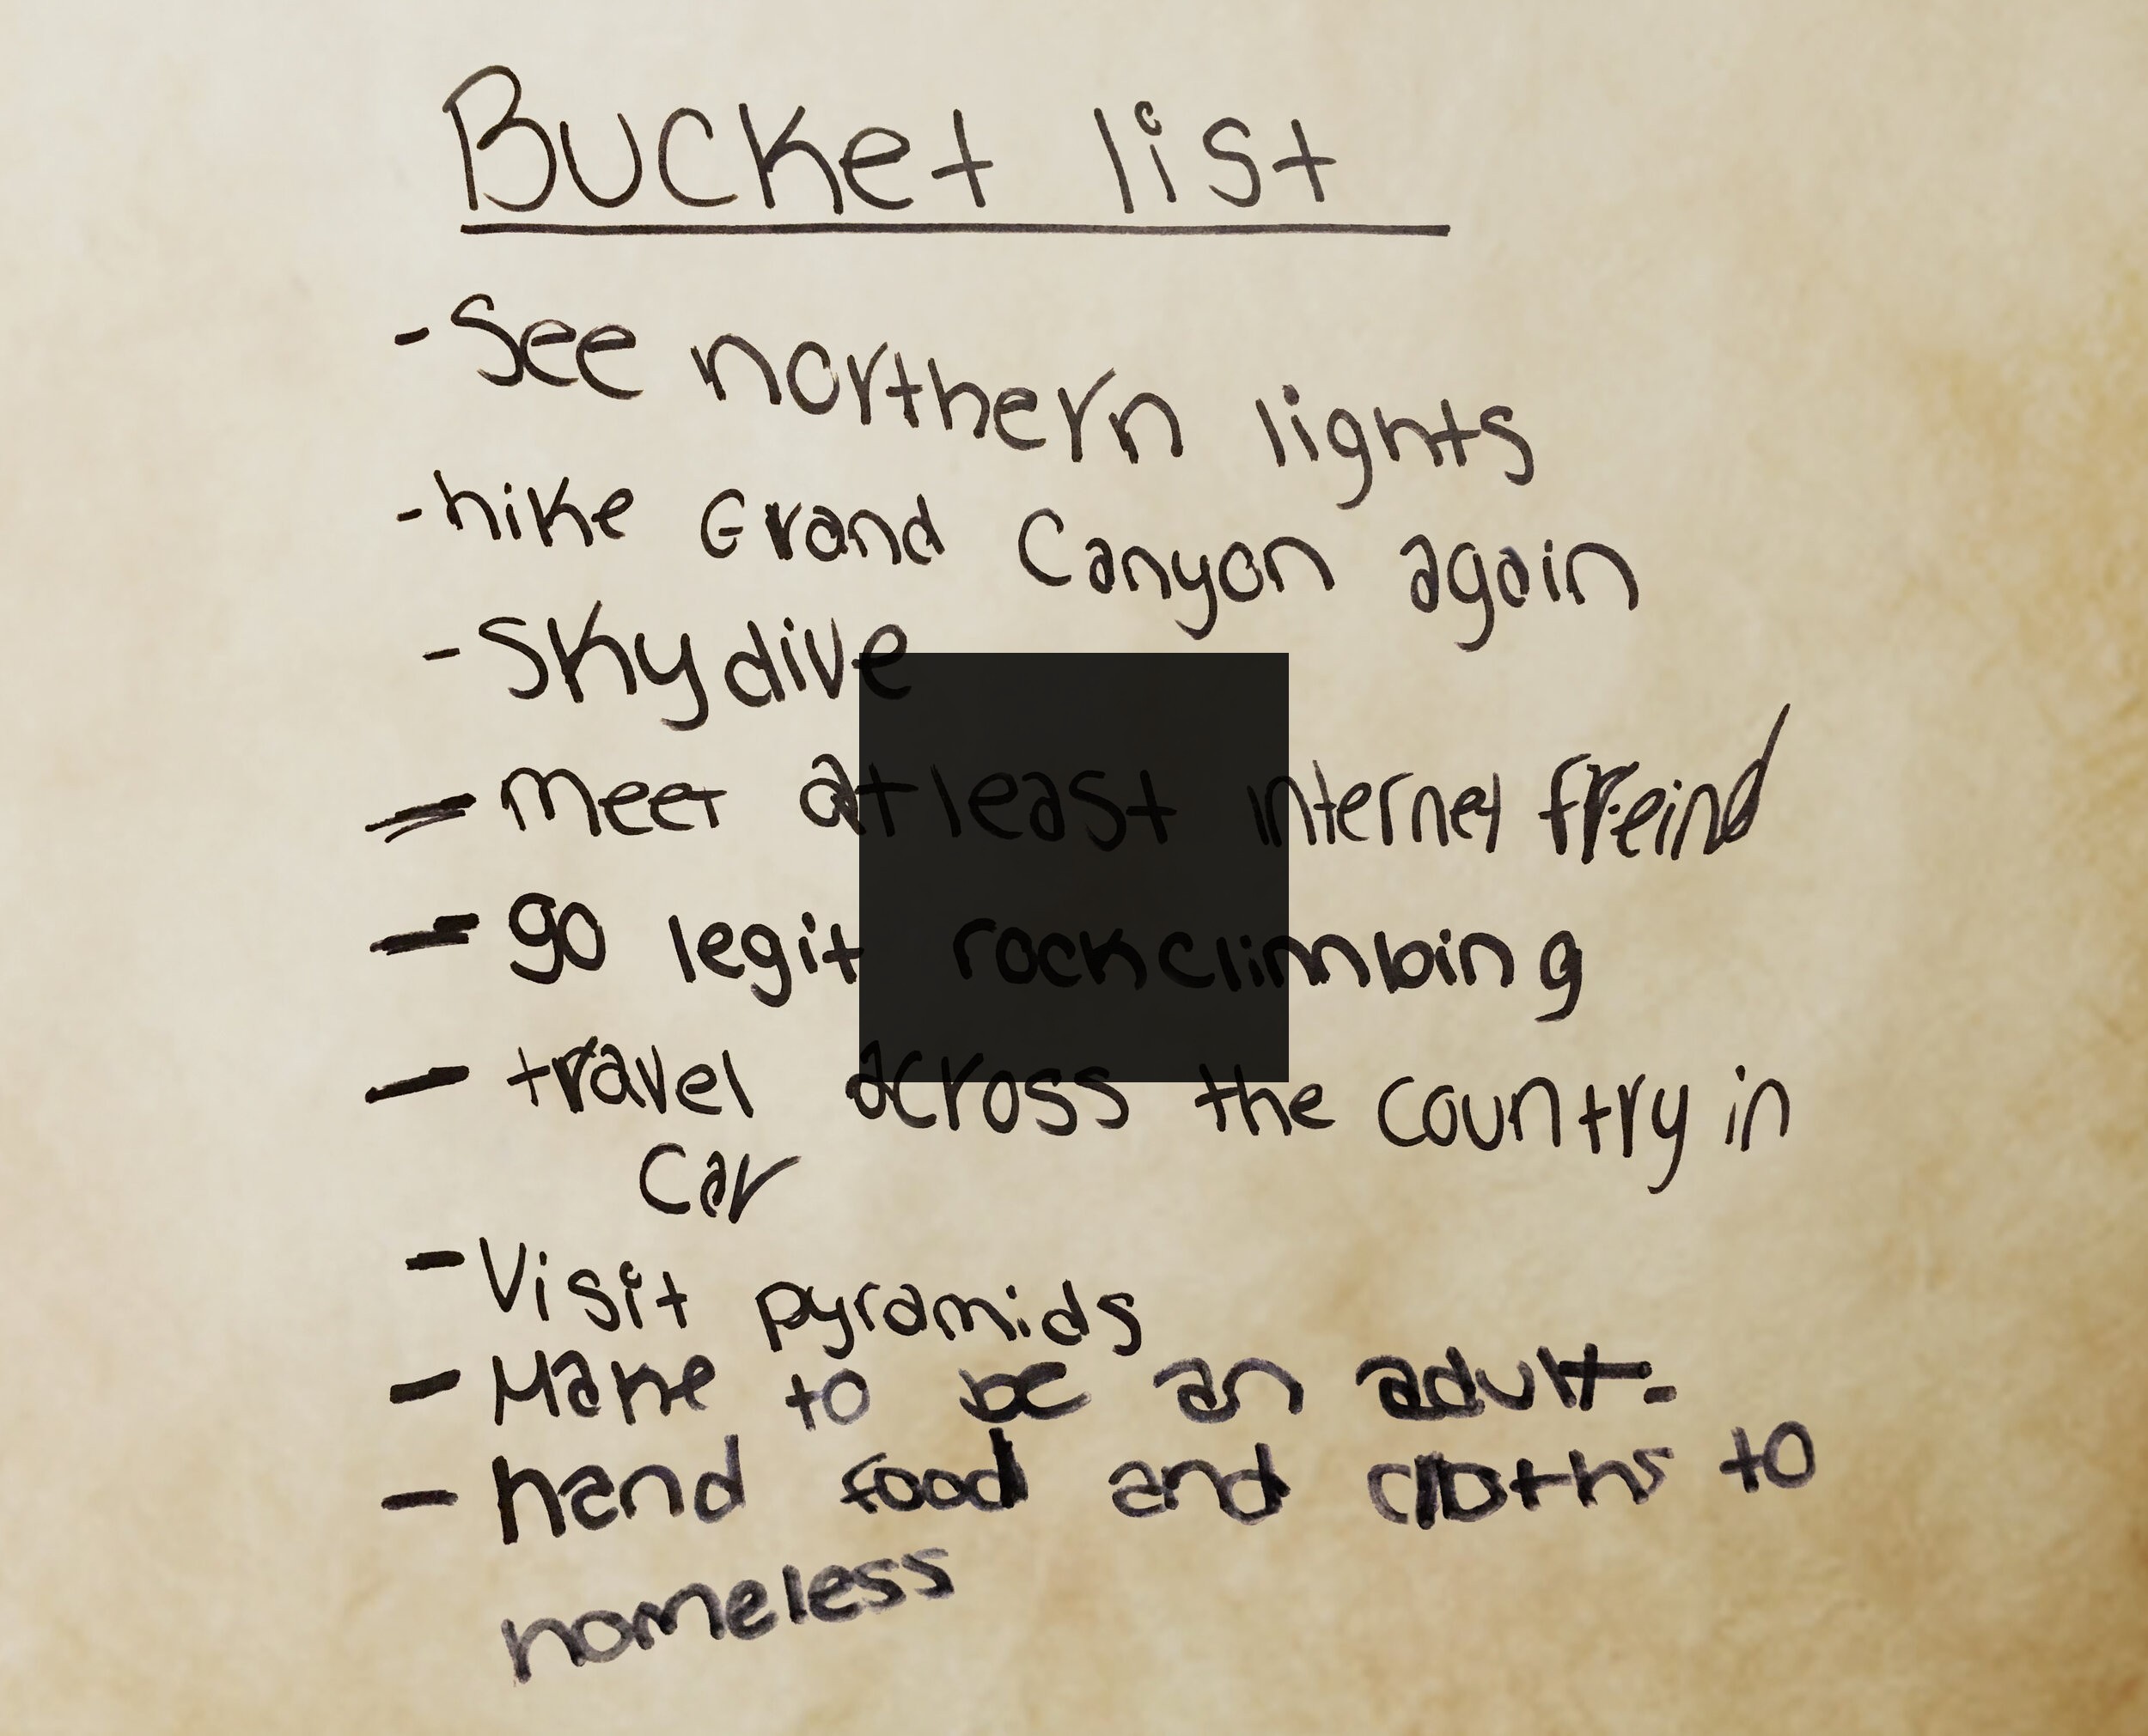 Bucket list
- See northern lights
- hike Grand Canyon again
- Skydive
- meet at least internet freind
- go legit rockclimbing
- travel across the country in
car
- Visit pyramids
- Make to be an adult.
- hand food and cloths to
homeless